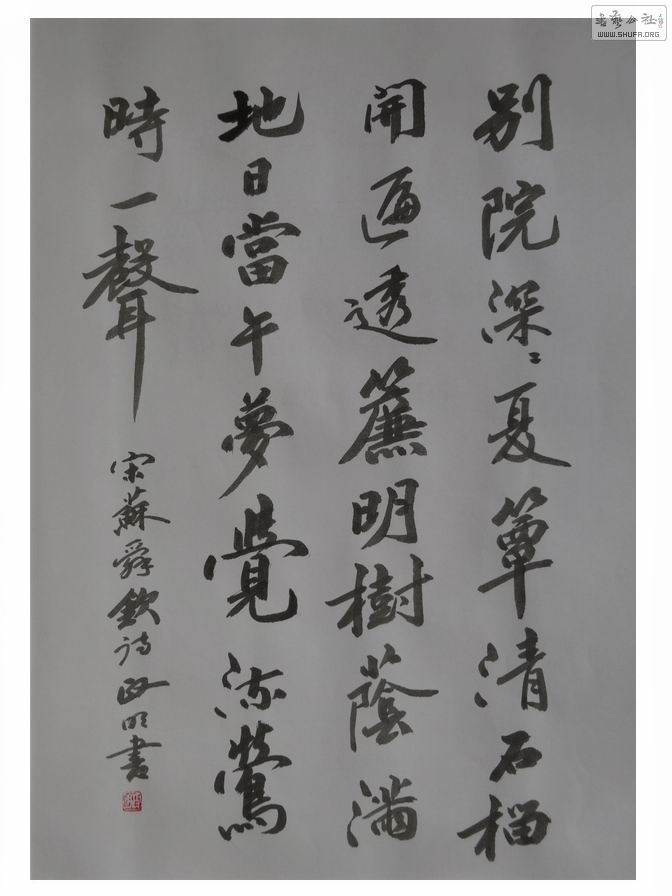 别院深〻夏簟清石榴
開遍透簾明樹蔭滿
地日當午夢覺流鶯
時一聲
宋蘇舜欽诗政明書
书艺公社
WWW.SHUFA.ORG